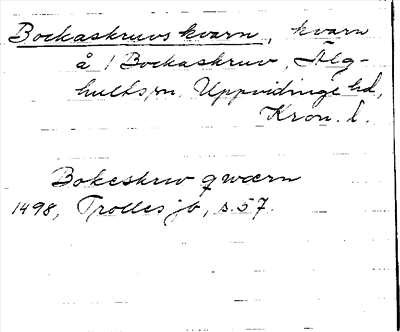 Bockaskruvs kvarn, kvarn
å 1 Bockaskruv, Älg-
hults sn, Uppvidinge hd,
Kron. l.
Bokeskrw qwærn
1498, Trolles jb, s. 57.